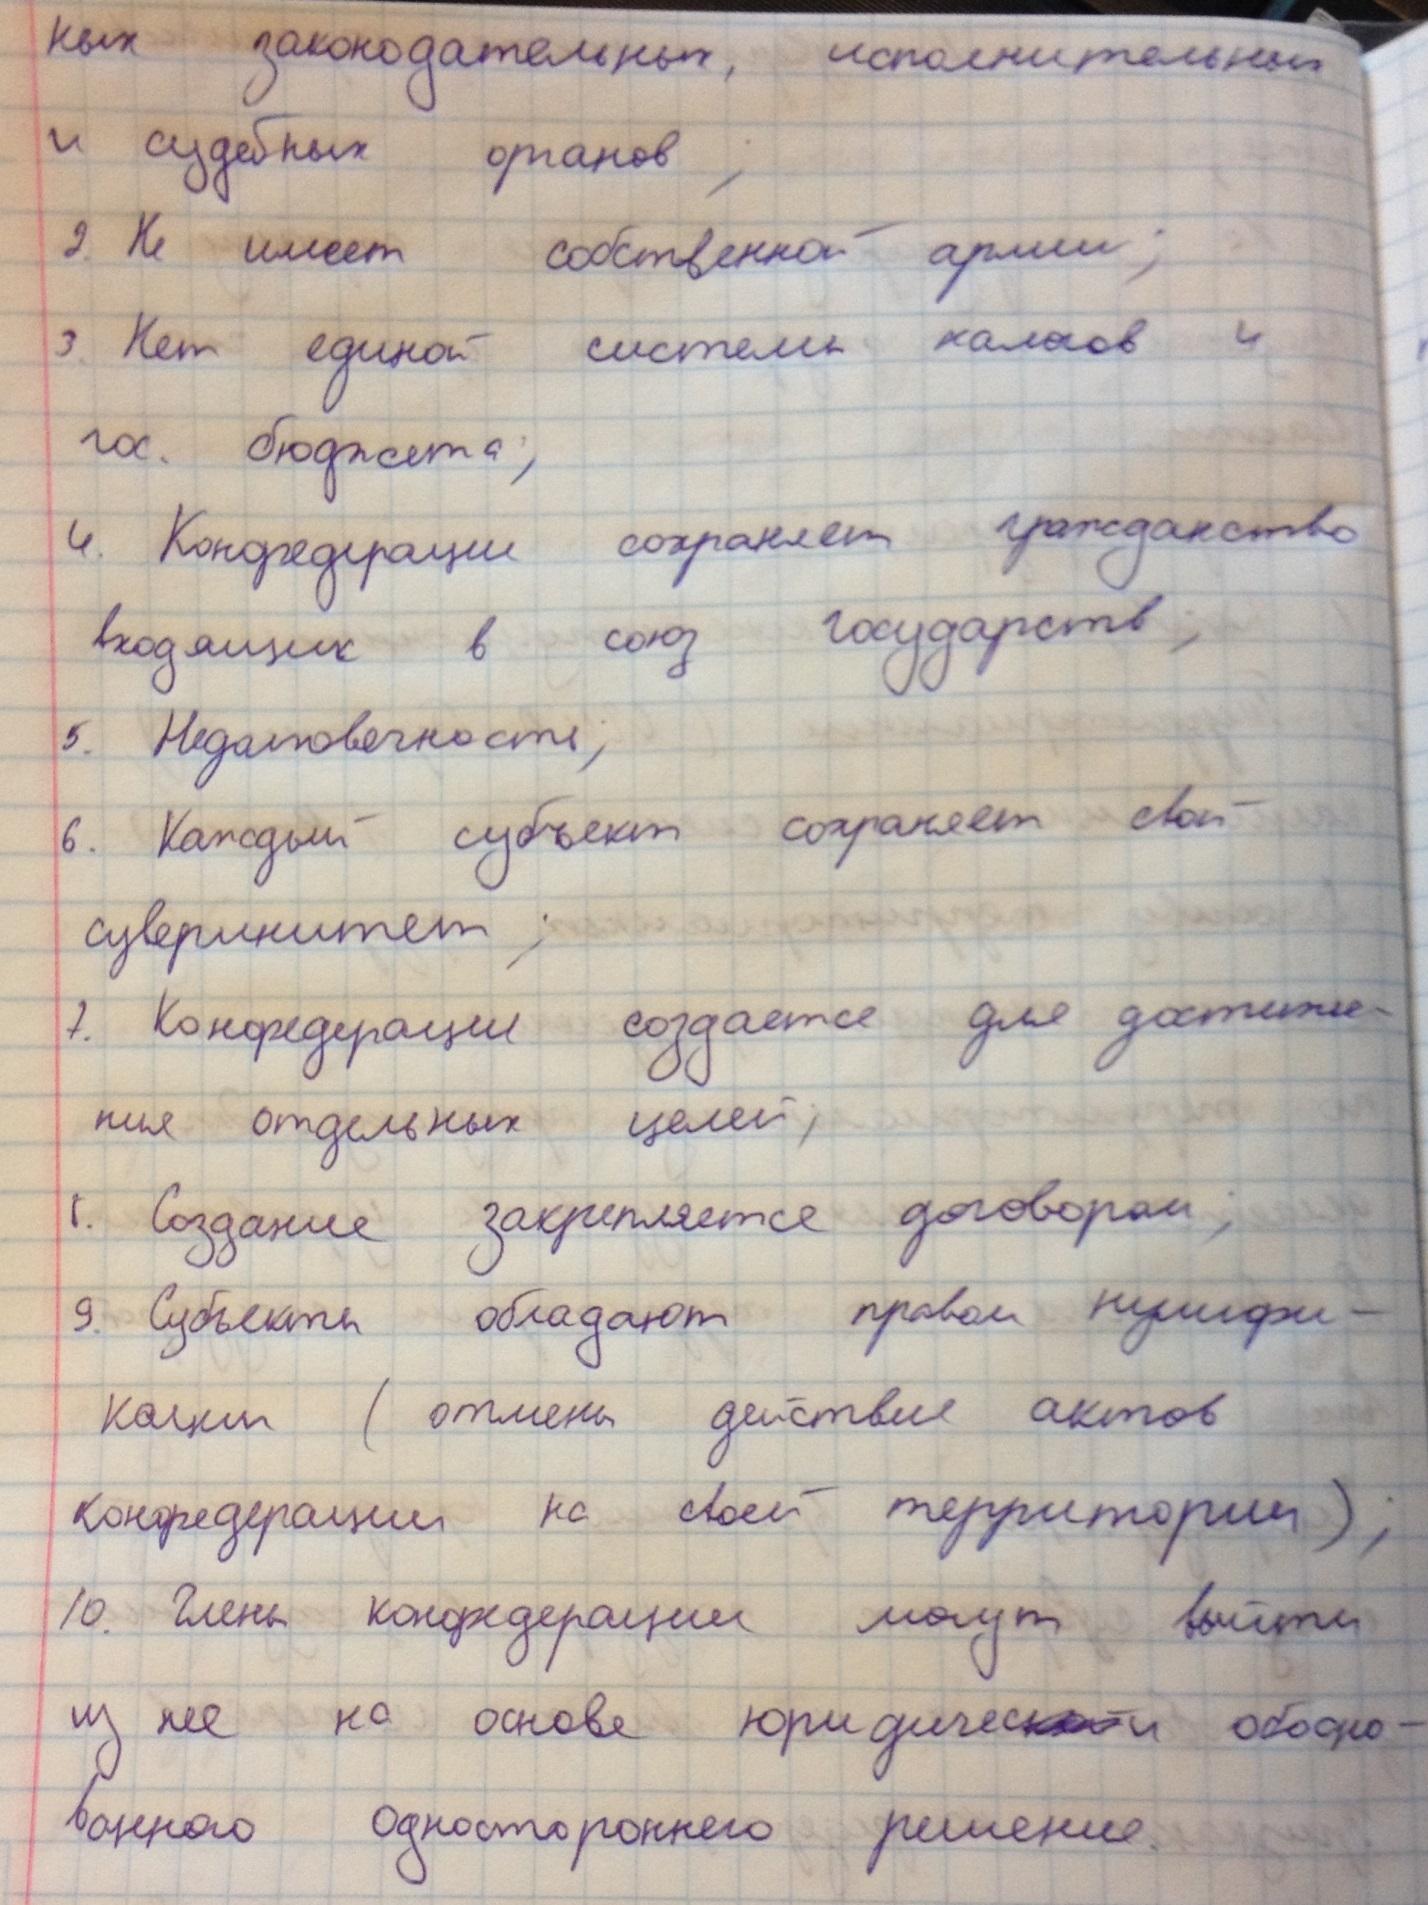 ных законодательных, исполнительных
и судебных органов;
2. Не имеет собственной армии;
3. Нет единой системы налогов и
гос. бюджета;
4. Конфедерации сохраняет гражданство
входящих в союз государств;
5. Недолговечность;
6. Каждый субъект сохраняет свой
суверинитет;
7. Конфедерации создается для достиже-
ния отдельных целей;
8. Создание закрепляется договором;
9. Субъекты обладают правом нулифи-
кации (отмены действие актов
конфедерации на своей территории);
10. Члены конфедерации могут выйти
из нее на основе юридически обосно-
ванного одностороннего решение.